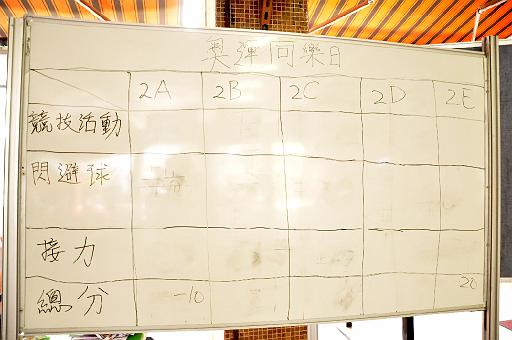 奧運同樂日
2A 2B 2C 2D 2E
競技活動
閃避球
接力
總分 -10 20